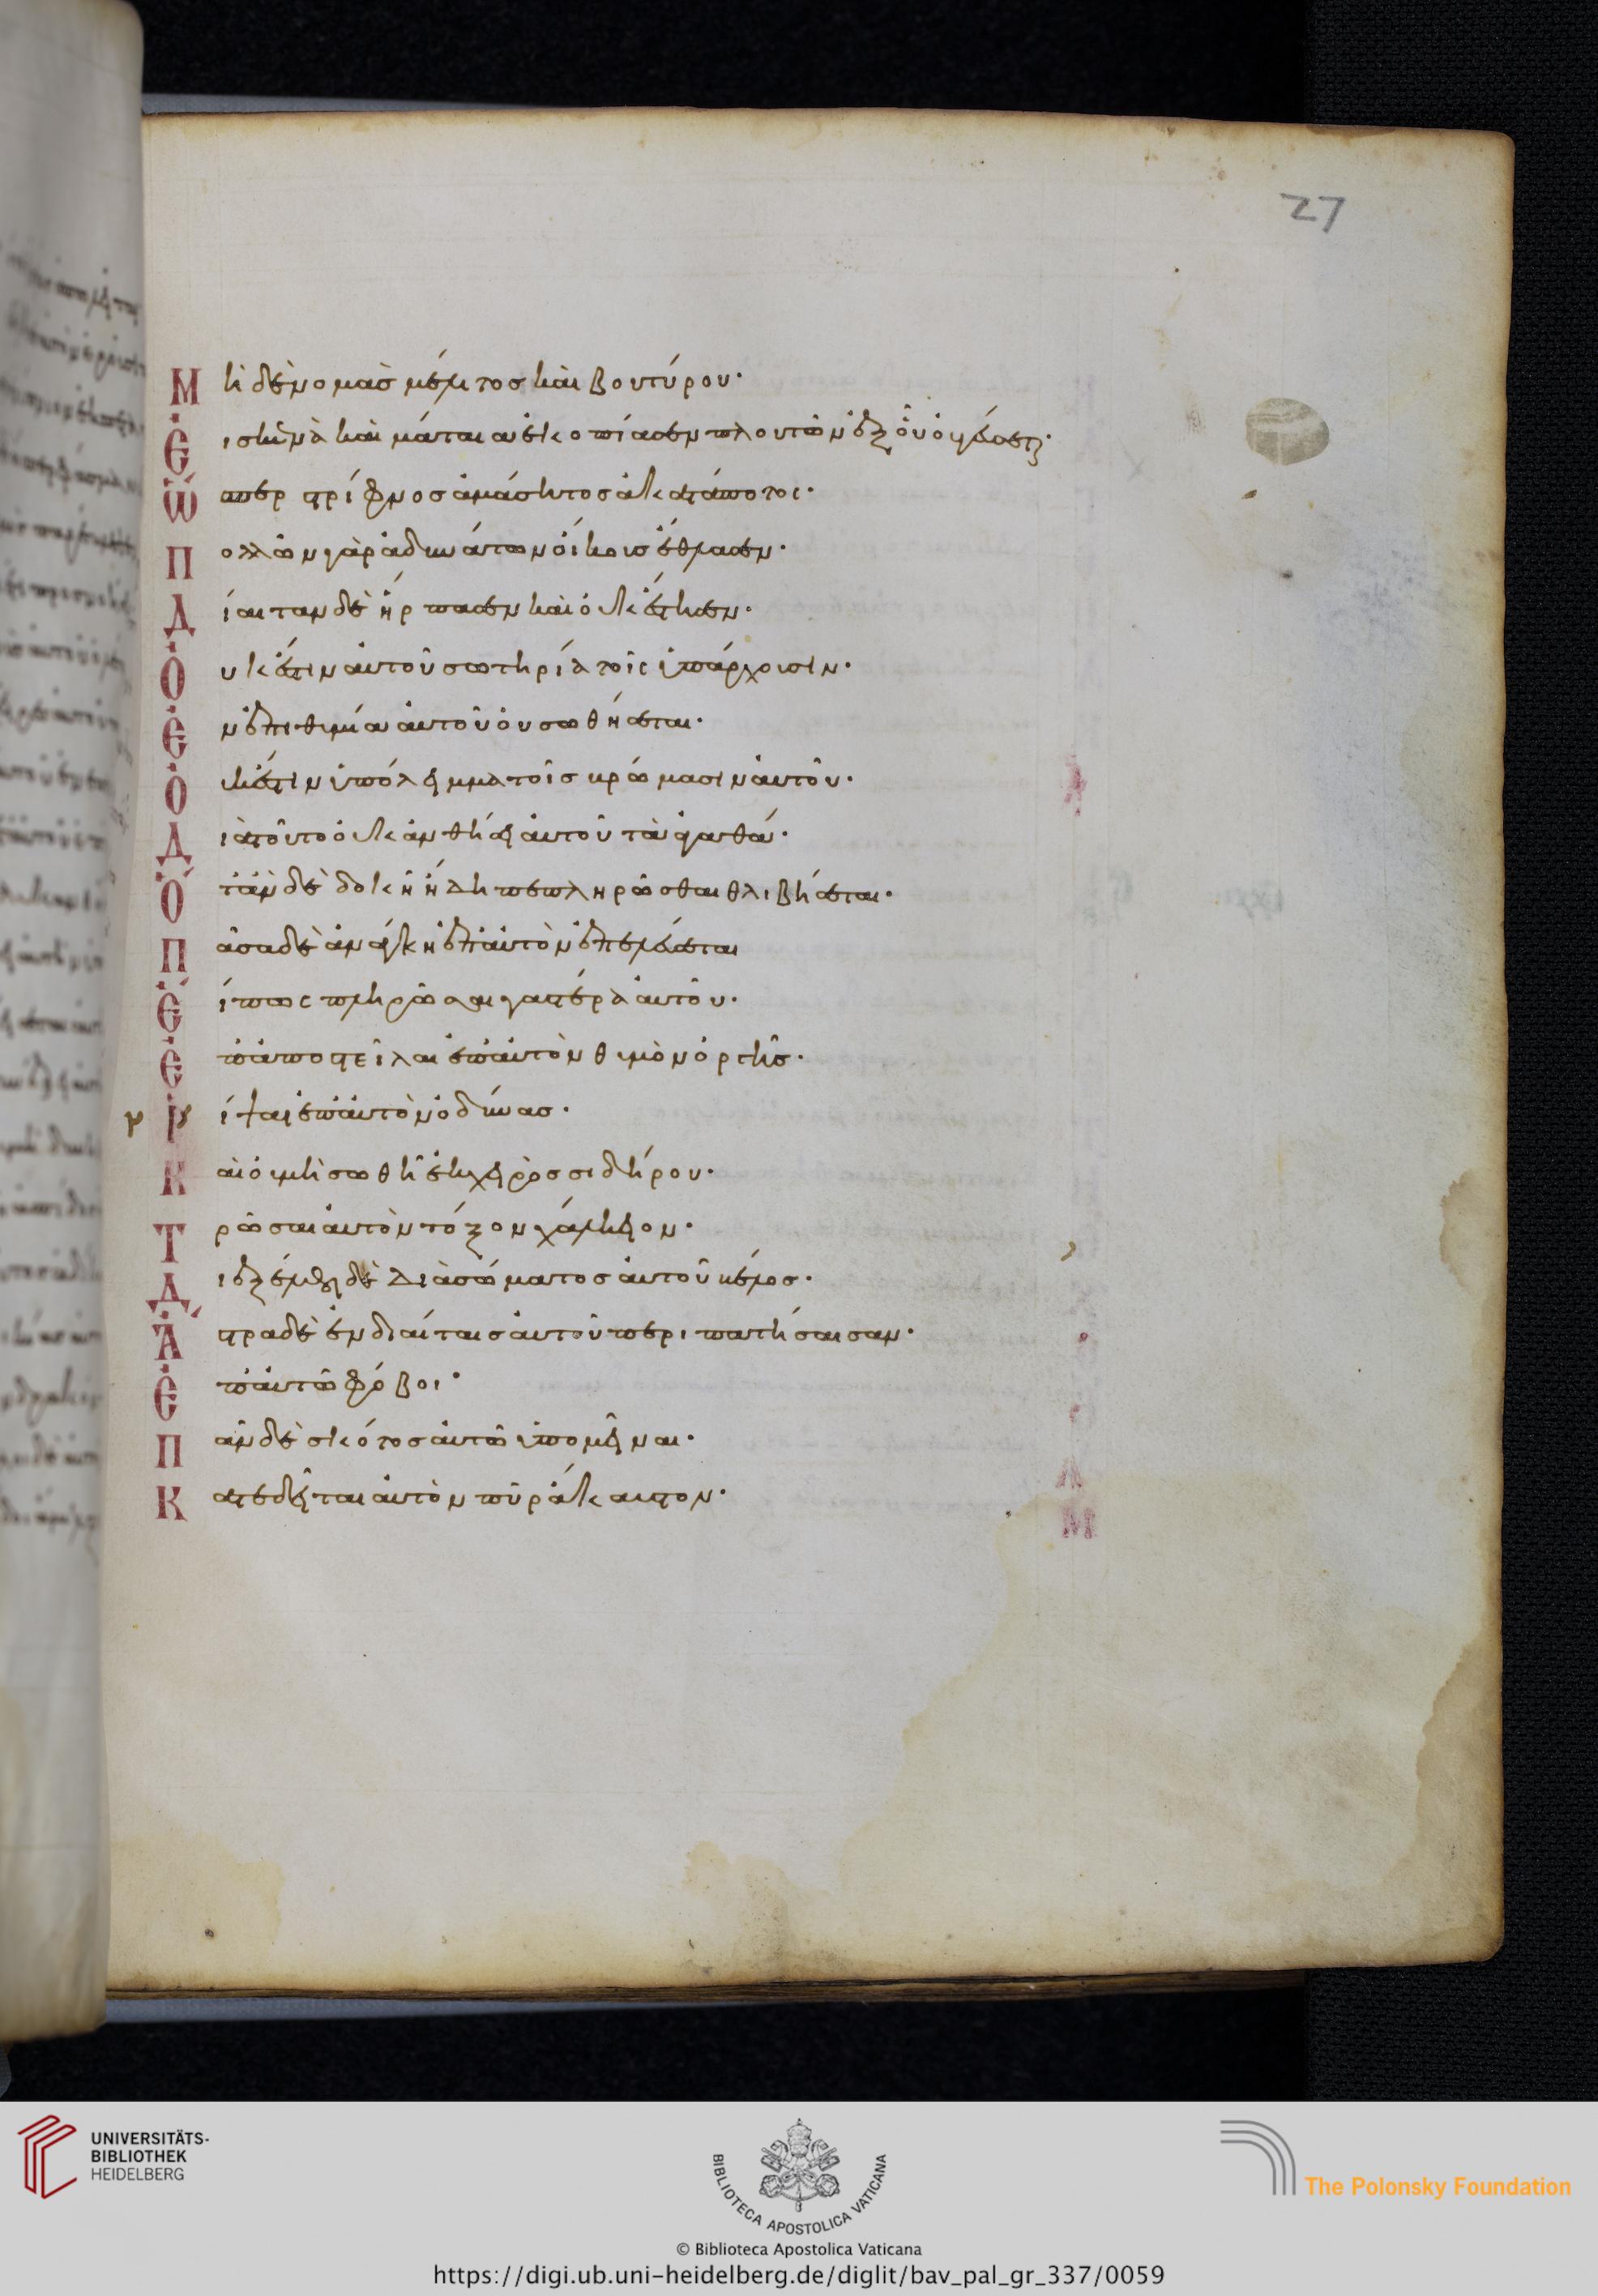 27
Μηδὲ νομὰς μέλιτος καὶ βουτύρου·
Εἰς κενὰ καὶ μάταια ἐκοπίασεν πλουτῶν ἐξ οὗ οὐ γεύσεται·
Ὥσπερ στρίφνος ἀμάσητος ἀκατάποτος·
Πολλῶν γὰρ ἀδυνάτων οἴκους ἔθλασεν·
Δίαιταν δὲ ἥρπασεν καὶ οὐκ ἔστησεν·
Οὐκ ἔστιν αὐτοῦ σωτηρία τοῖς ὑπάρχουσιν·
Ἐν ἐπιθυμία αὐτοῦ οὐ σωθήσεται·
Οὐκ ἔστιν ὑπόλειμμα τοῖς βρώμασιν αὐτοῦ·
Διὰ τοῦτο οὐκ ἀνθήσει αὐτοῦ τὰ ἀγαθά·
Ὅταν δὲ δοκῆ ἤδη πεπληρῶσθαι θλιβήσεται·
Πᾶσα δὲ ἀνάγκη ἐπ' αὐτὸν ἐπελεύσεται
Εἴ πως πληρῶσαι γαστέρα αὐτοῦ·
Ἐπαποστεῖλαι ἐπ' αὐτὸν θυμὸν ὀργῆς·
Νίψαι ἐπ' αὐτὸν ὀδύνας·
Καὶ οὐ μὴ σωθῆ ἐκ χειρὸς σιδήρου·
Τρώσαι αὐτὸν τόξον χάλκειον·
Διεξέλθοι δὲ διὰ σώματος αὐτοῦ βέλος·
Ἄστρα δὲ ἐν διαίταις αὐτοῦ περιπατήσαισαν·
Ἐπ' αὐτῶ φόβοι·
Πᾶν δὲ σκότος αὐτῶ ὑπομεῖναι·
Κατεδεῖται αὐτὸν πῦρ ἄκαυστον·
UNIVERSITÄTS-
BIBLIOTHEK
HEIDELBERG
BIBLIOTECA APOSTOLICA VATICANA
The Polonsky Foundation
© Biblioteca Apostolica Vaticana
https://digi.ub.uni-heidelberg.de/diglit/bav_pal_gr_337/0059